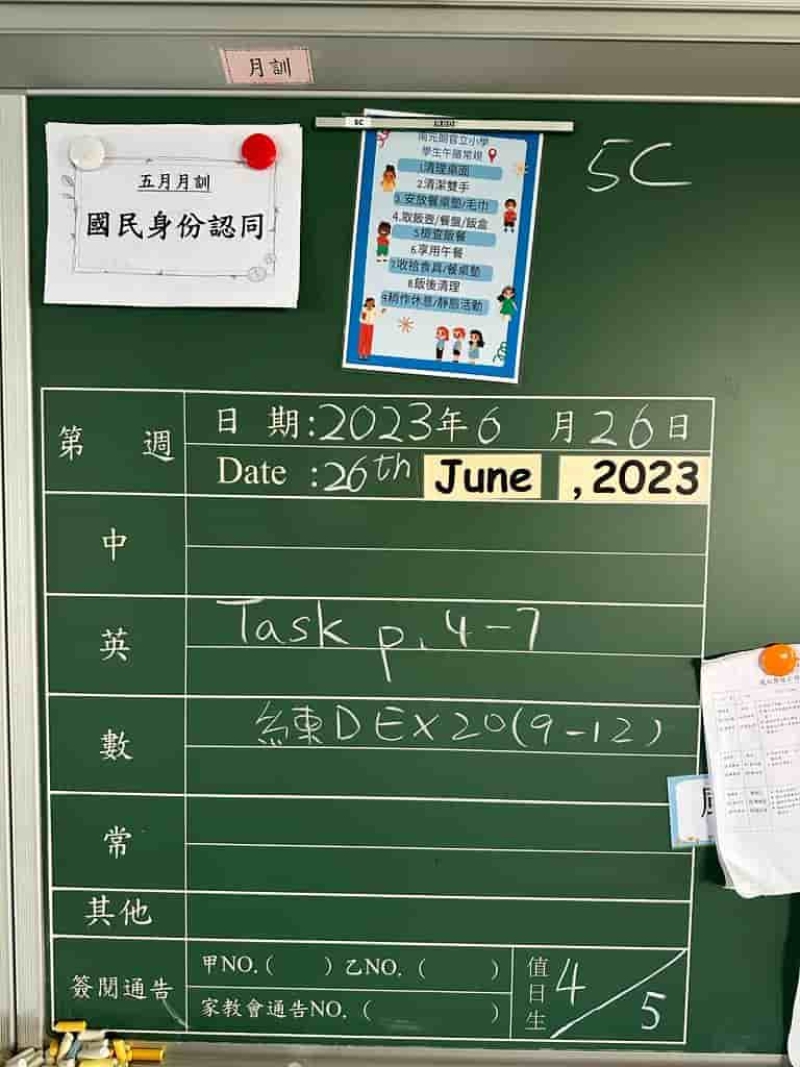 月訓
五月月訓
國民身份認同
5C
南元朗官立小學
學生午膳常規
1.清理桌面
2.清潔雙手
3.安放餐桌墊/毛巾
4.取飯壺/餐盤/飯盒
5.檢查飯餐
6.享用午餐
7.收拾食具/餐桌墊
8.飯後清理
9.稍作休息/靜態活動
5C
第 週
日 期:2023年6 月26日
Date :26th June , 2023
中
英
Task p. 4-7
數
練D EX20(9-12)
常
其他
簽閱通告
甲NO.( ) 乙NO. ( )
家教會通告NO. ( )
值日生
4/5